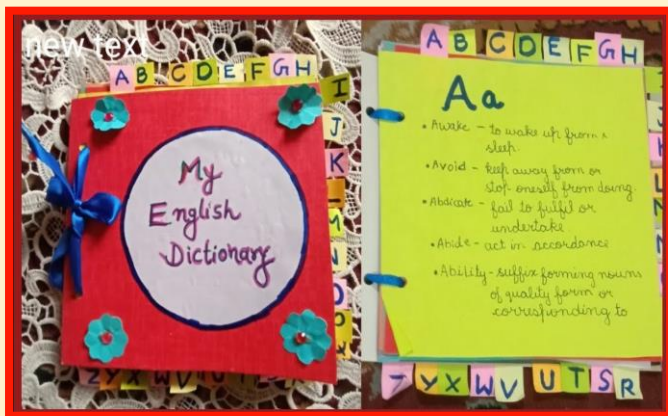 new text
A B C D E F G H
I
J
K
L
M
N
O
P
My
English
Dictionary
Z Y X W V U
A B C D E F G H
Aa
• Awake - to wake up from
sleep.
• Avoid - keep away from or
stop oneself from doing.
• Abdicate - fail to fulfil or
undertake
• Abide - act in accordance
• Ability - suffix forming nouns
of quality form or
corresponding to
Z Y X W V U T S R